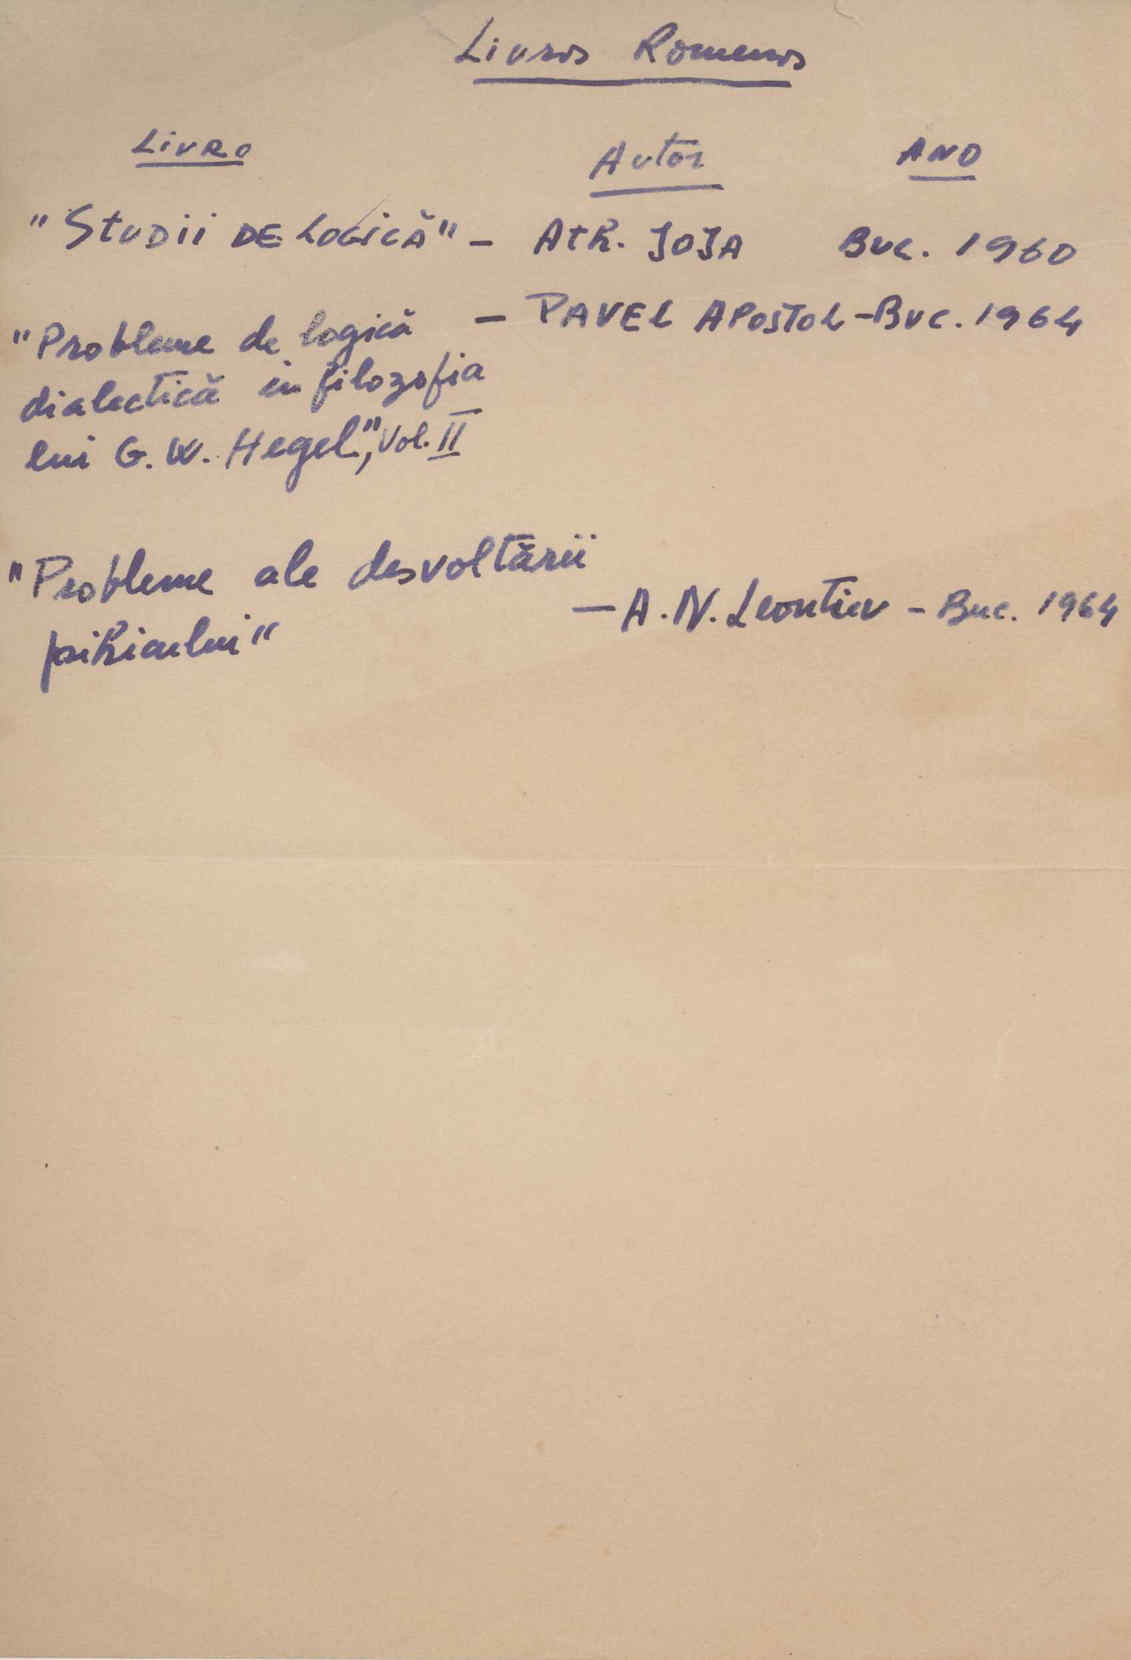 Livros Romenos
Livro Autor ANO
"Studii DE LOGICĂ" - Ath. JOJA Buc. 1960
"Probleme de logică - PAVEL APOSTOL - Buc. 1964
dialectică in filozofia
lui G. W. Hegel", Vol. II
"Probleme ale desvoltării
- A. N. Leontiev - Buc. 1964
psihicului"